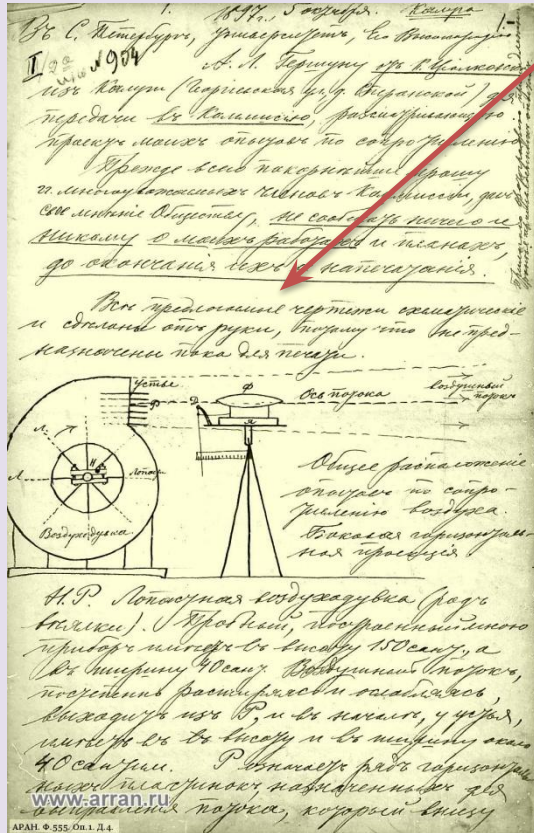 1. 1897 г. 5 октября. Калуга 1.
Въ С. Петербургъ, университетъ, Его Высокородию
II № 904
А. Л. Гершуну отъ К. Циолковскаго
изъ Калуги (Георгіевская ул. д. Сперанской) для
передачи въ Коммиссію, разсматривающую
проектъ моихъ опытовъ по сопротивленію
Прежде всего покорнѣйше прошу
и многоуважаемыхъ членовъ Коммиссіи, дать
свое мнѣніе Обществу, не сообщать ничего и
никому о моихъ работахъ и планахъ
до окончанія ихъ и напечатанія.
Всѣ предложенные чертежи схематическіе
и сдѣланы отъ руки, потому что не пред-
назначены пока для печати.
устье Р Ф Ось потока воздушный потокъ
Д
Л Н
Л Лопасти
Воздуходувка
Общее расположеніе
опытовъ по сопро-
тивленію воздуха.
Боковая горизонталь-
ная проекція.
Н.Р. Лопастная воздуходувка (родъ
вѣялки). Пробный, построенный мною
приборъ имѣетъ въ высоту 150 сант., а
въ ширину 40 сант. Воздушный потокъ,
постепенно расширяясь и ослабляясь,
выходитъ изъ Р, и въ началѣ, у устья,
имѣетъ въ высоту и въ ширину около
40 сантим. Р означаетъ рядъ горизонталь
ныхъ пластинокъ, назначенныхъ для
выправленія потока, который внизу
www.arran.ru
АРАН. Ф.555. Оп.1. Д.4.